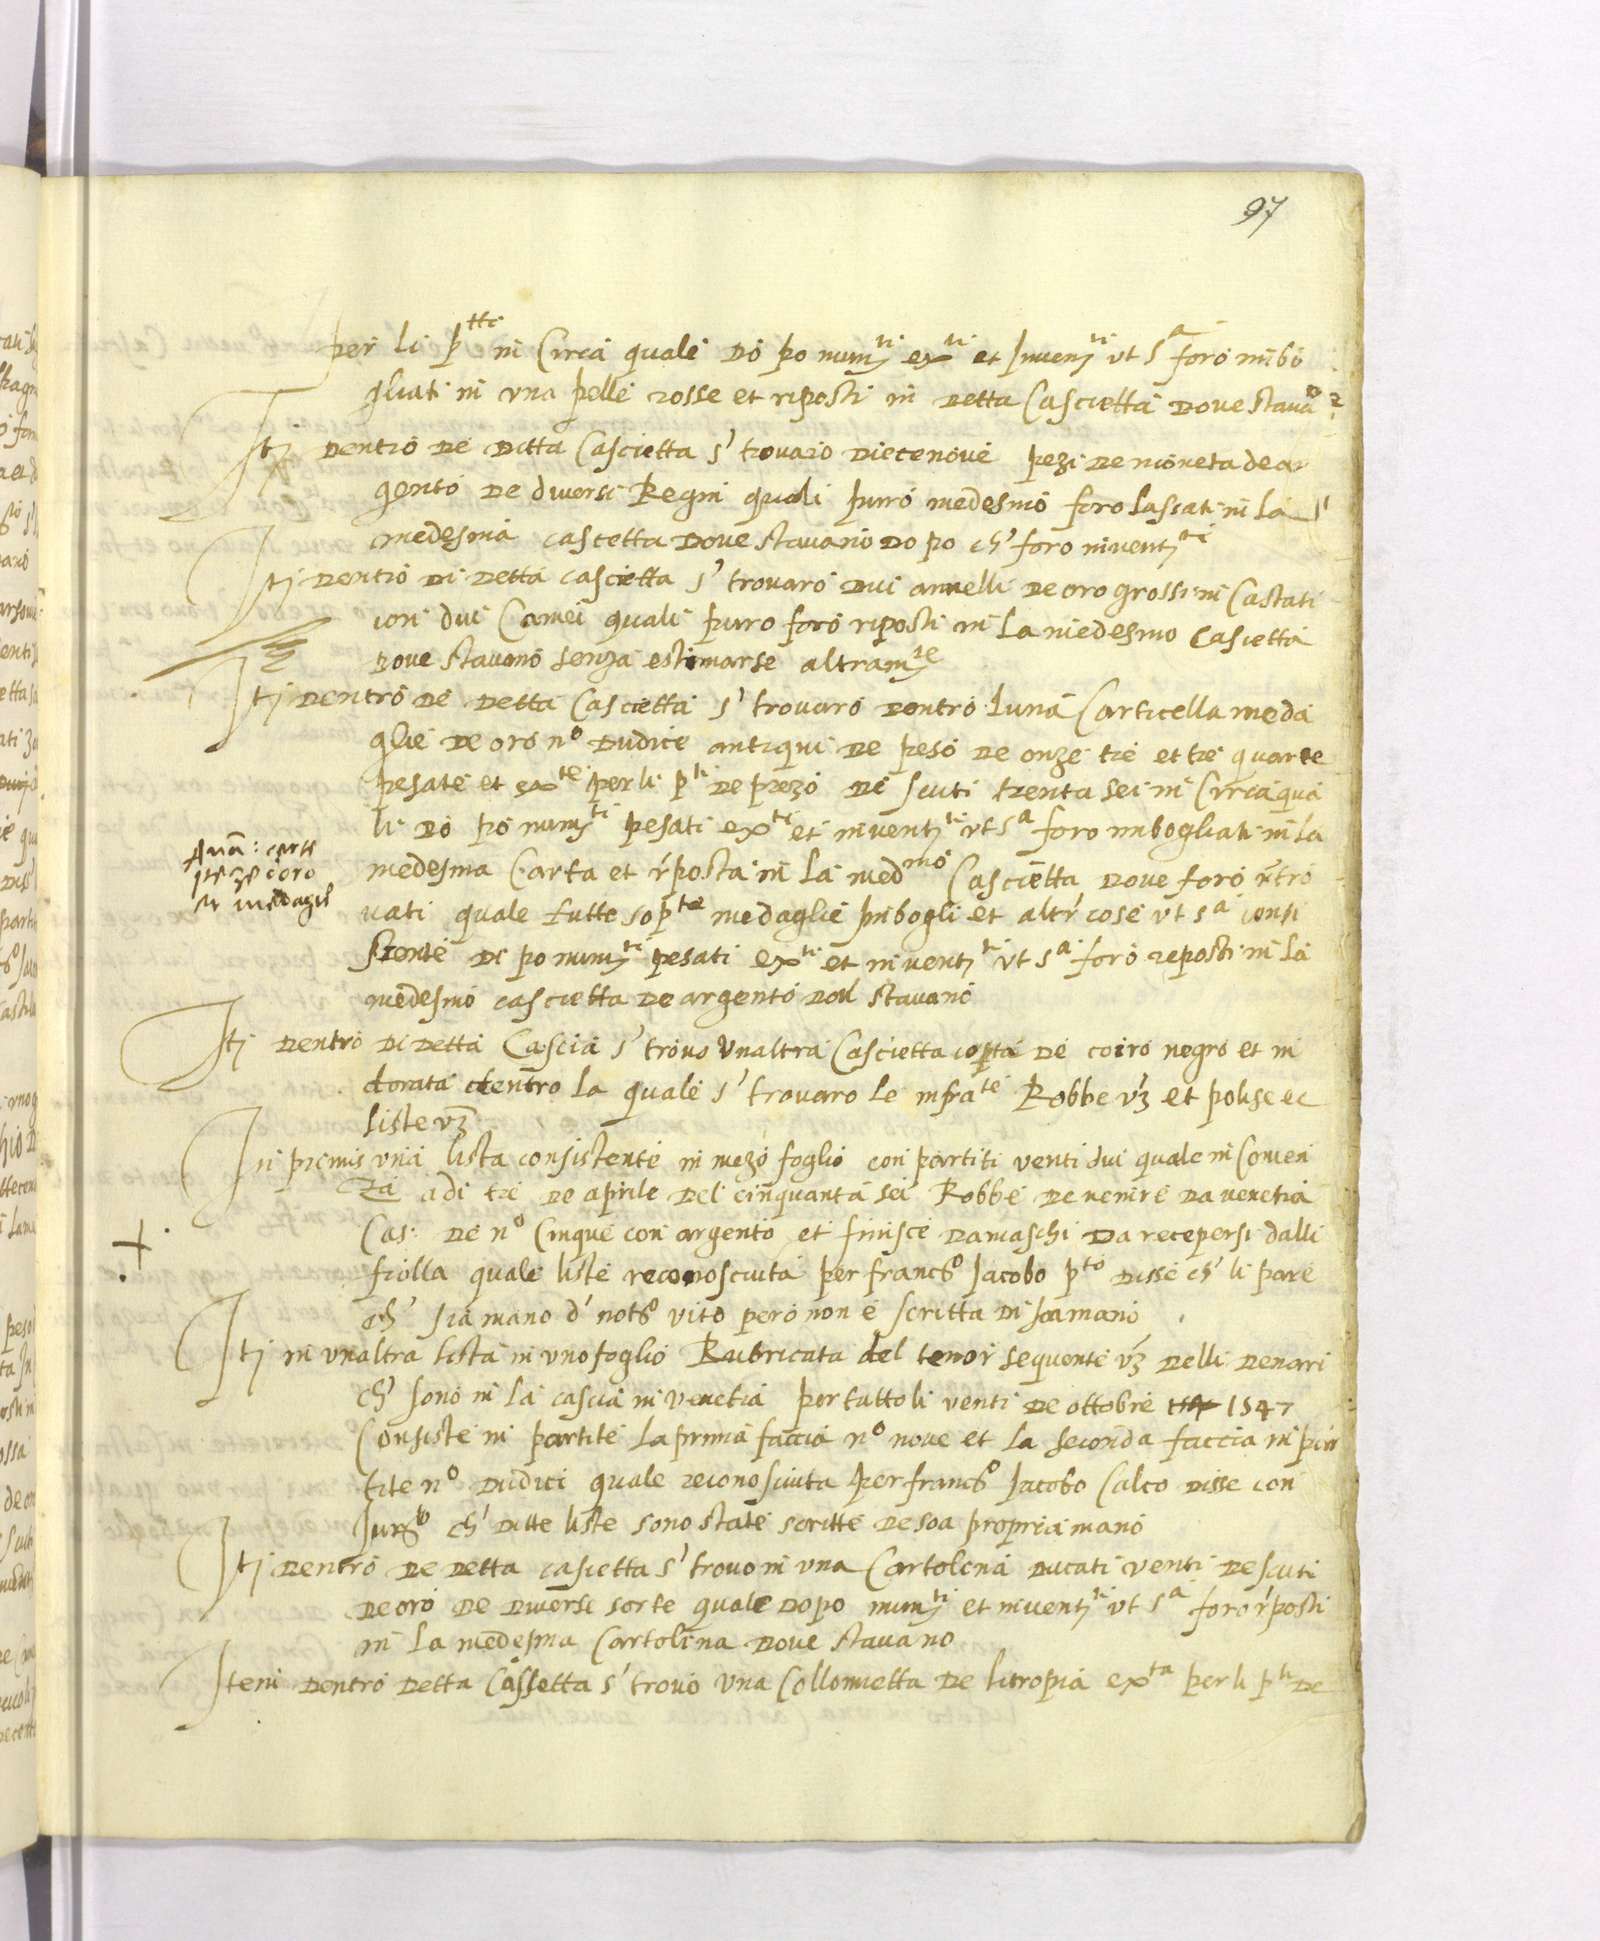 97
per li p^tti in Circa quale Do po num^ti ex^ti et Inven^ti ut s^a foro inbo
gliati in una pelle rosse et riposti in Detta Casciettà Dove stava^o
Itj Dentro De Ditta Cascietta s' trovaro Diecenove pezi De moneta de ar
gento De diversi Regni quali puro medesmo foro lassati in La
medesma cascetta Dove stavano Do po ch' foro invent^ti
Itj Dentro Di Detta cascietta s' trovaro Dui annelli De oro grossi in Castati
con dui Camei quali puro foro riposti in La medesmo Cascetta
Dove stavano senza estimarse altram^te
Itj Dentro De Detta Casciettà s' trovaro Dentro Junà Carticella meda
glie De oro n^o Dudice antiqui De peso De onze tre et tre quarte
Pesate et ex^te per li p^ti De prezo De scuti trenta sei in Circa qua
li Do po num^ti pesati ex^ti et invent^ti ut s^a foro imbogliati in La
Quā: carte
medesma Carta et r'posta in La med^mo Cascietta Dove foro r'tro
vati quale tutte sop^te medaglie inbogli et altr' cose ut s^a consi
stente Di po num^ti pesati ex^ti et invent^ti ut s^a foro reposti in La
medesmo cascietta De argento Dove stavano
Itj Dentro Di Detta Cascia s' trovo Unaltra Cascietta cop̄ta De coiro negro et in
dorata dentro la quale s' trovaro le infra^te Robbe vz et polise et
liste vz
In primis una lista consistente in mezo foglio con partiti venti dui quale in Comen
za a di tre De aprile Del cinquanta sei Robbe De venire Da venetia
Cas: De n^o Cinque con argento et finisce Damaschi Da recepersi dalli
fiolla quale liste reconosciuta per franc^o Jacobo p^to Disse ch' li pare
ch' sia mano d' not^o vito però non è scritta Di sua mano
Itj in unaltra lista in uno foglio Rubricata del tenor sequente vz Delli Denari
ch' sono in La cascia in Venetia per tuttoli venti De ottobre 1547
Consiste in partite La prima faccia n^o nove et La seconda faccia in par
tite n^o Dudici quale reconosciuta per franc^o Jacobo Calco Disse con
Jur^to ch' Ditte liste sono state scritte De soa propria mano
Itj Dentro De Detta cascetta s' trovo in una Cartolina Ducati venti De scuti
De oro De Diverse sorte quale Dopo num^ti et invent^ti ut s^a foro r'posti
in La medesma Cartolina Dove stavano
Item Dentro Detta Cassetta s' trovò Una Collonnetta De litropia ex^ta per li p^ti De